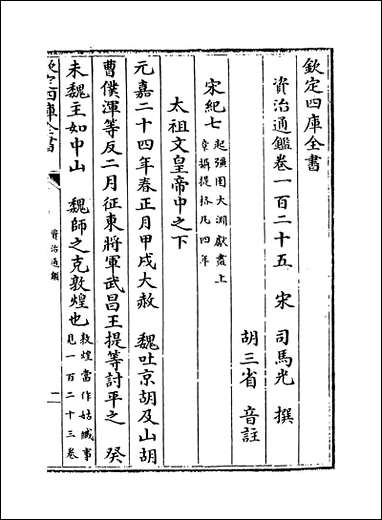 欽定四庫全書
資治通鑑卷一百二十五　宋　司馬光　撰
胡三省　音註
宋紀七起彊圉大淵獻盡上章攝提格凡四年
太祖文皇帝中之下
元嘉二十四年春正月甲戌大赦　魏吐京胡及山胡
曹僕渾等反二月征東將軍武昌王提等討平之　癸
未魏主如中山　魏師之克敦煌也敦煌當作姑臧事見一百二十三卷
欽定四庫全書
資治通鑑
一